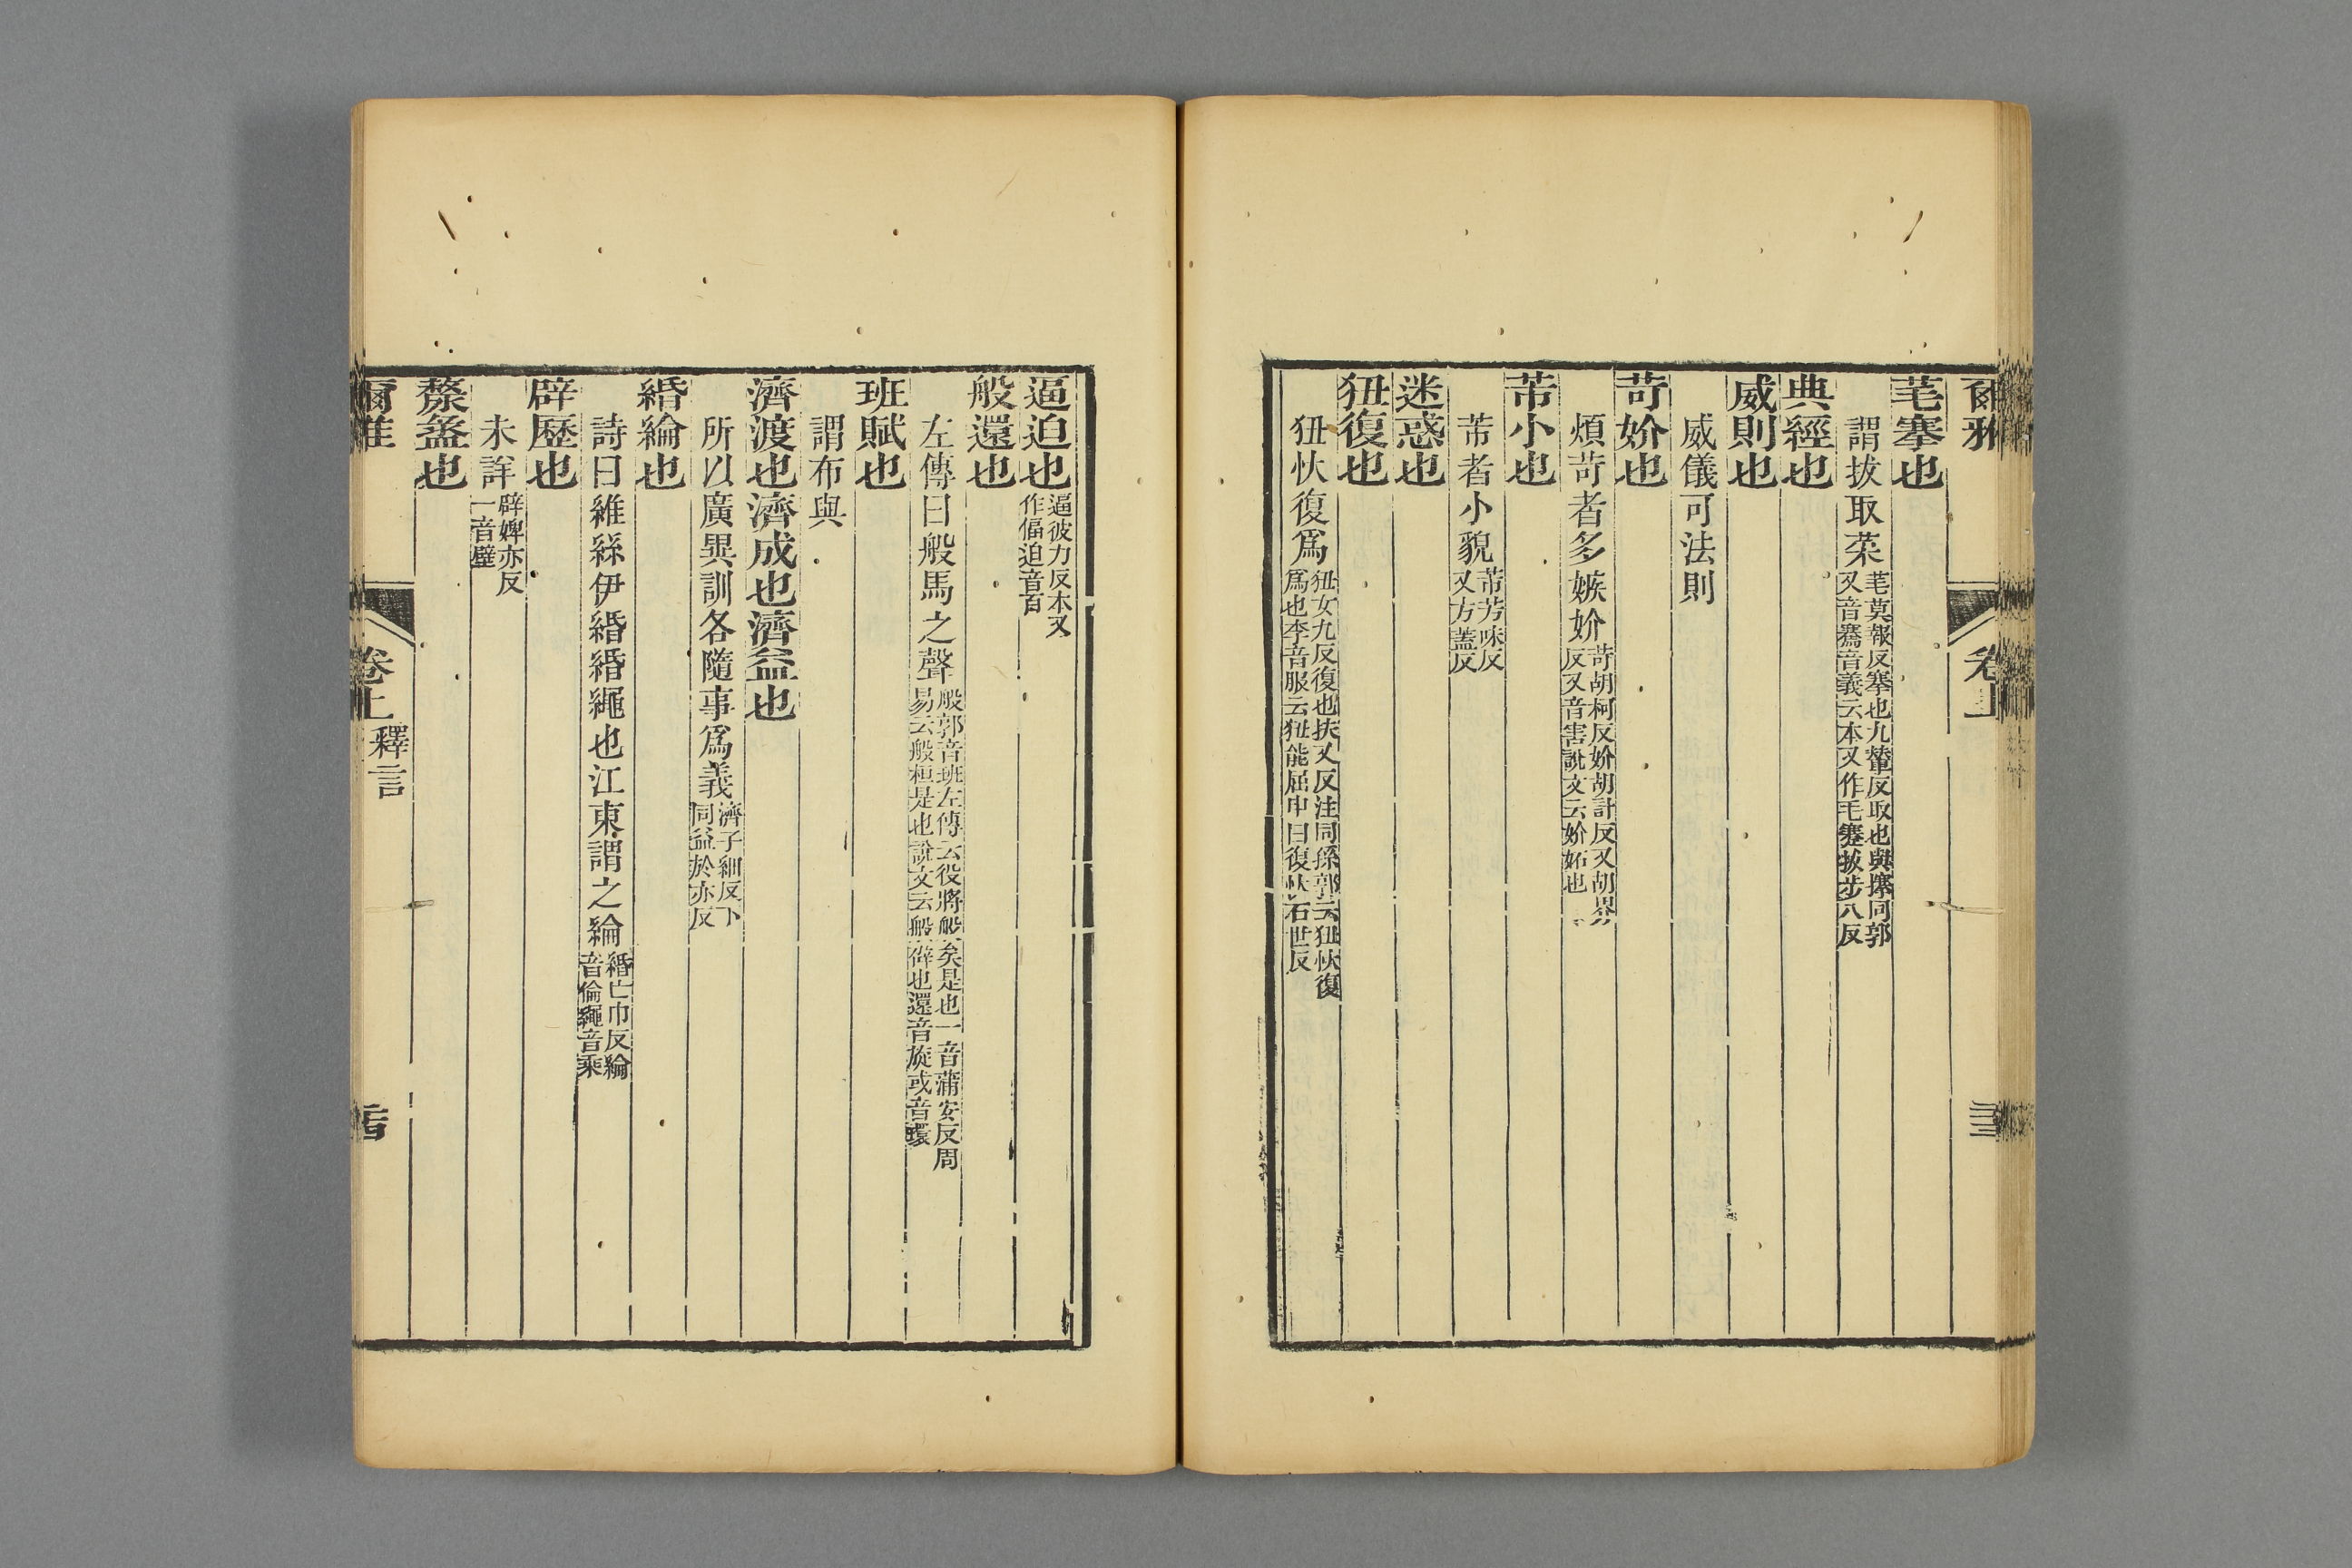 爾雅
卷上
芼搴也
謂拔取菜芼莫報反搴也九輦反取也與攓同郭
又音騫音義云本又作毛蹇拔步八反
典經也
威則也
威儀可法則
苛妎也
煩苛者多嫉妎苛胡柯反妎胡計反又胡界
反又音害說文云妎妬也
芾小也
芾者小貌芾芳味反
又方蓋反
迷惑也
狃復也
狃忕復爲狃女九反復也扶又反注同孫郭云狃忕復
爲也李音服云狃能屈申曰復忕石世反
逼迫也逼彼力反本又
作偪迫音百
般還也
左傳曰般馬之聲般郭音班左傳云役將般矣是也一音蒲安反周
易云般桓是也說文云般辟也還音旋或音環
班賦也
謂布與
濟渡也濟成也濟益也
所以廣異訓各隨事爲義濟子細反下
同益於亦反
緡綸也
詩曰維絲伊緡緡繩也江東謂之綸緡亡巾反綸
音倫繩音乘
辟歷也
未詳辟婢亦反
一音壁
漦盝也
爾雅
卷上
釋言